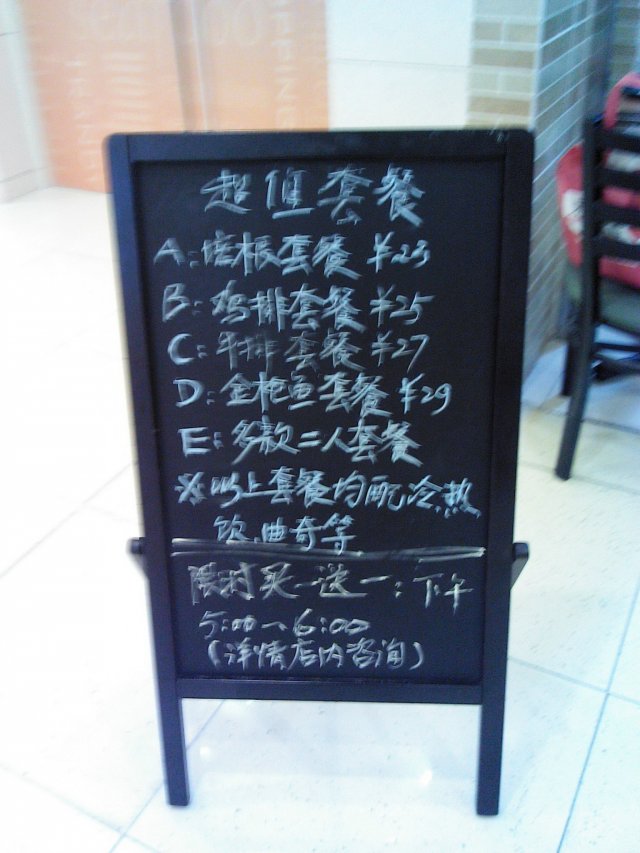 超值套餐
A:培根套餐 ¥23
B:鸡排套餐 ¥25
C:牛排套餐 ¥27
D:金枪鱼套餐 ¥29
E:多款二人套餐
※以上套餐均配冷、热
饮、曲奇等
限时买一送一:下午
5:00~6:00
(详情店内咨询)